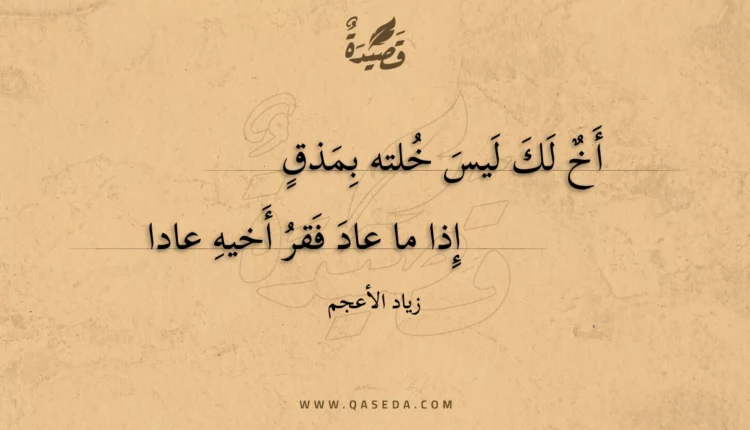 قَصِيدَةٌ
أَخٌ لَكَ لَيسَ خُلته بِمَذقٍ
إِذا ما عادَ فَقرُ أَخيهِ عادا
زياد الأعجم
WWW.QASEDA.COM